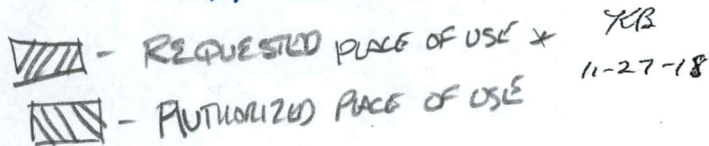 - REQUESTED PLACE OF USE *
KB
11-27-18
- AUTHORIZED PLACE OF USE